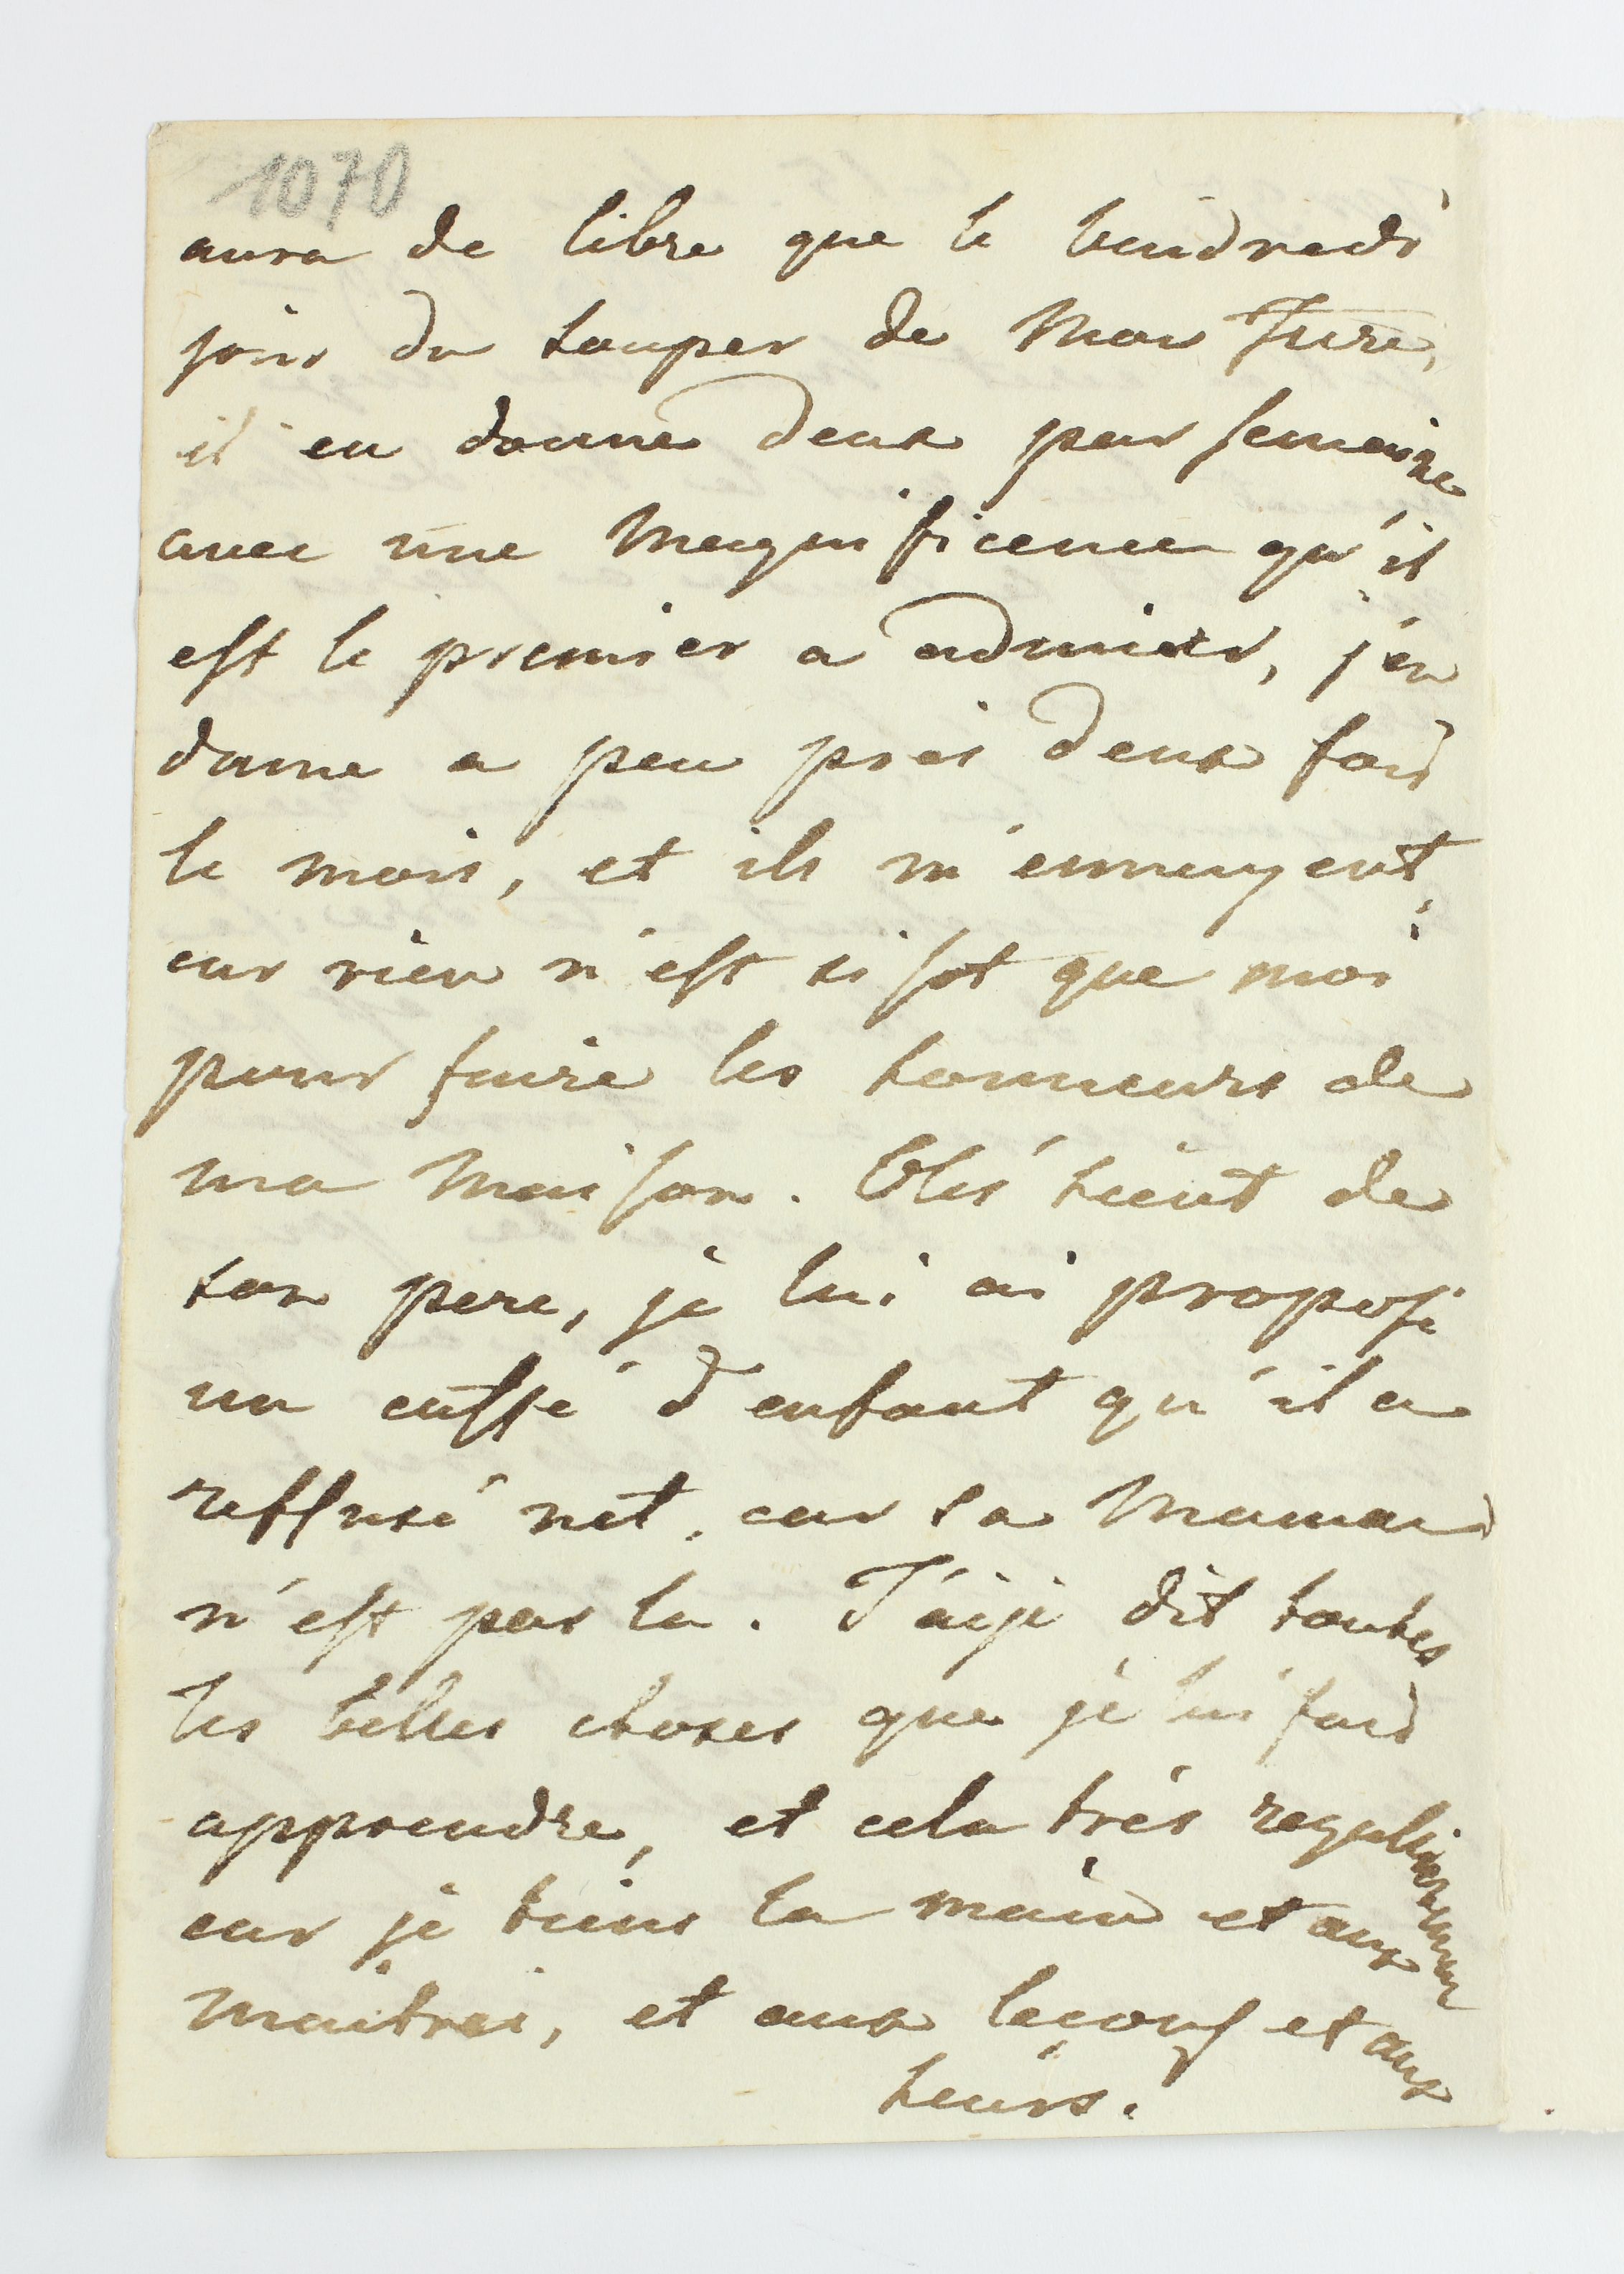 1070
aura de libre que le vendredi
jour du souper de Mon Frere,
il en donne deux par semaine
avec une Magnificence qu'il
est le premier a admirer, j'en
donne a peu près deux fois
le mois, et ils m'ennuyent,
car rien n'est si sot que moi
pour faire les honneurs de
ma Maison. tient de
son pere, je lui ai proposé
un caffé d'enfant qu'il a
reffusé net. car sa Maman
n'est pas la. T'ai je dit toutes
les belles choses que je lui fais
apprendre, et cela très regulierement
car je tiens la main et aux
Maitres, et aux leçons et aux
heurs.